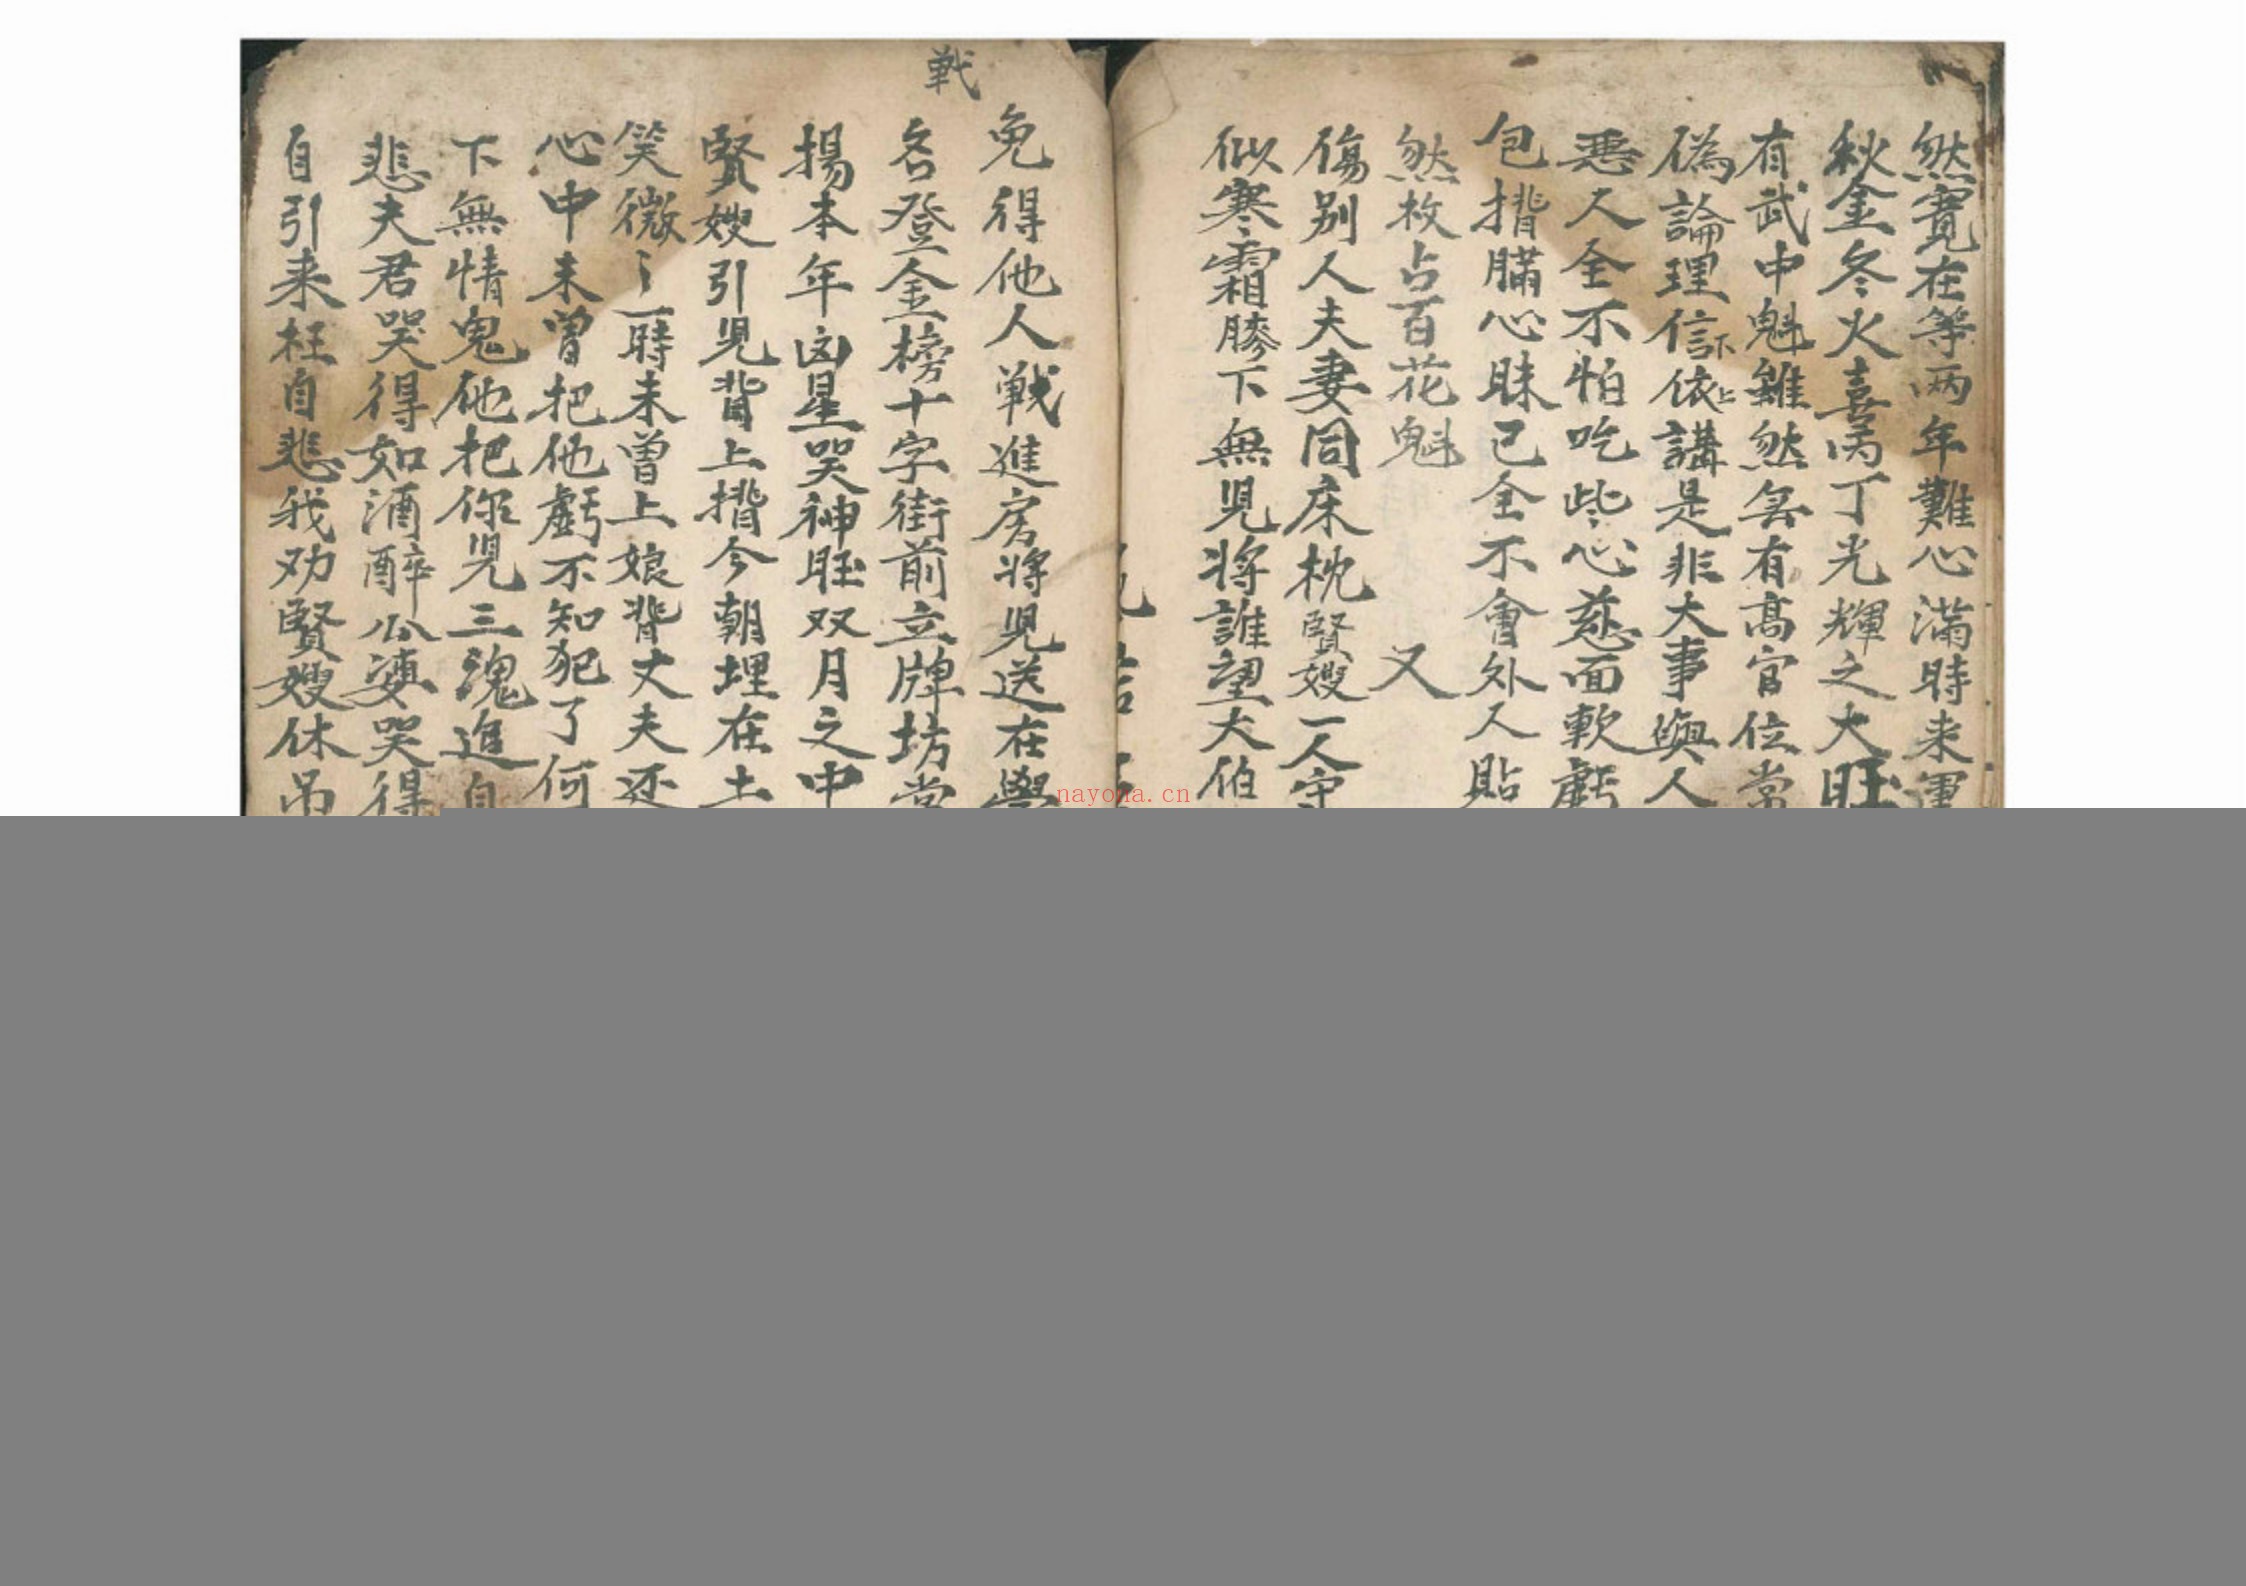 然寬在等两年難心滿時来運
秋金冬火喜丙丁光輝之大旺
有武中魁雖然無有髙官位常
偽論理信下依上講是非大事與人
惡人全不怕吃些心慈面軟虧
包揹臟心昧己全不會外人貼
然枚占百花魁 又
傷别人夫妻同床枕賢嫂一人守
似寒霜膝下無児将誰望大伯
戦
免得他人戦進房将児送在學
名登金榜十字街前立牌坊常
揚本年凶星哭神旺双月之中
賢嫂引児背上揹今朝埋在土
笑微〻一時未曾上娘背丈夫还
心中未曾把他虧不知犯了何
下無情鬼他把你児三魂追自
悲夫君哭得如酒醉公婆哭得
自引来枉自悲我劝賢嫂休吊
nayona.cn